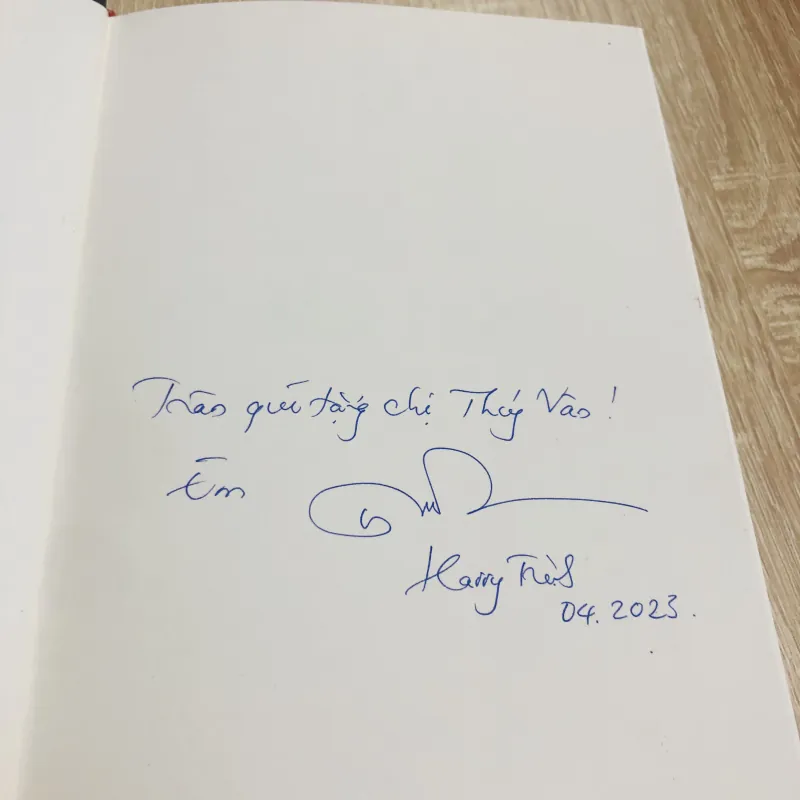 Trân quí tặng chị Thúy Vân!
Em
Harry
04.2023.